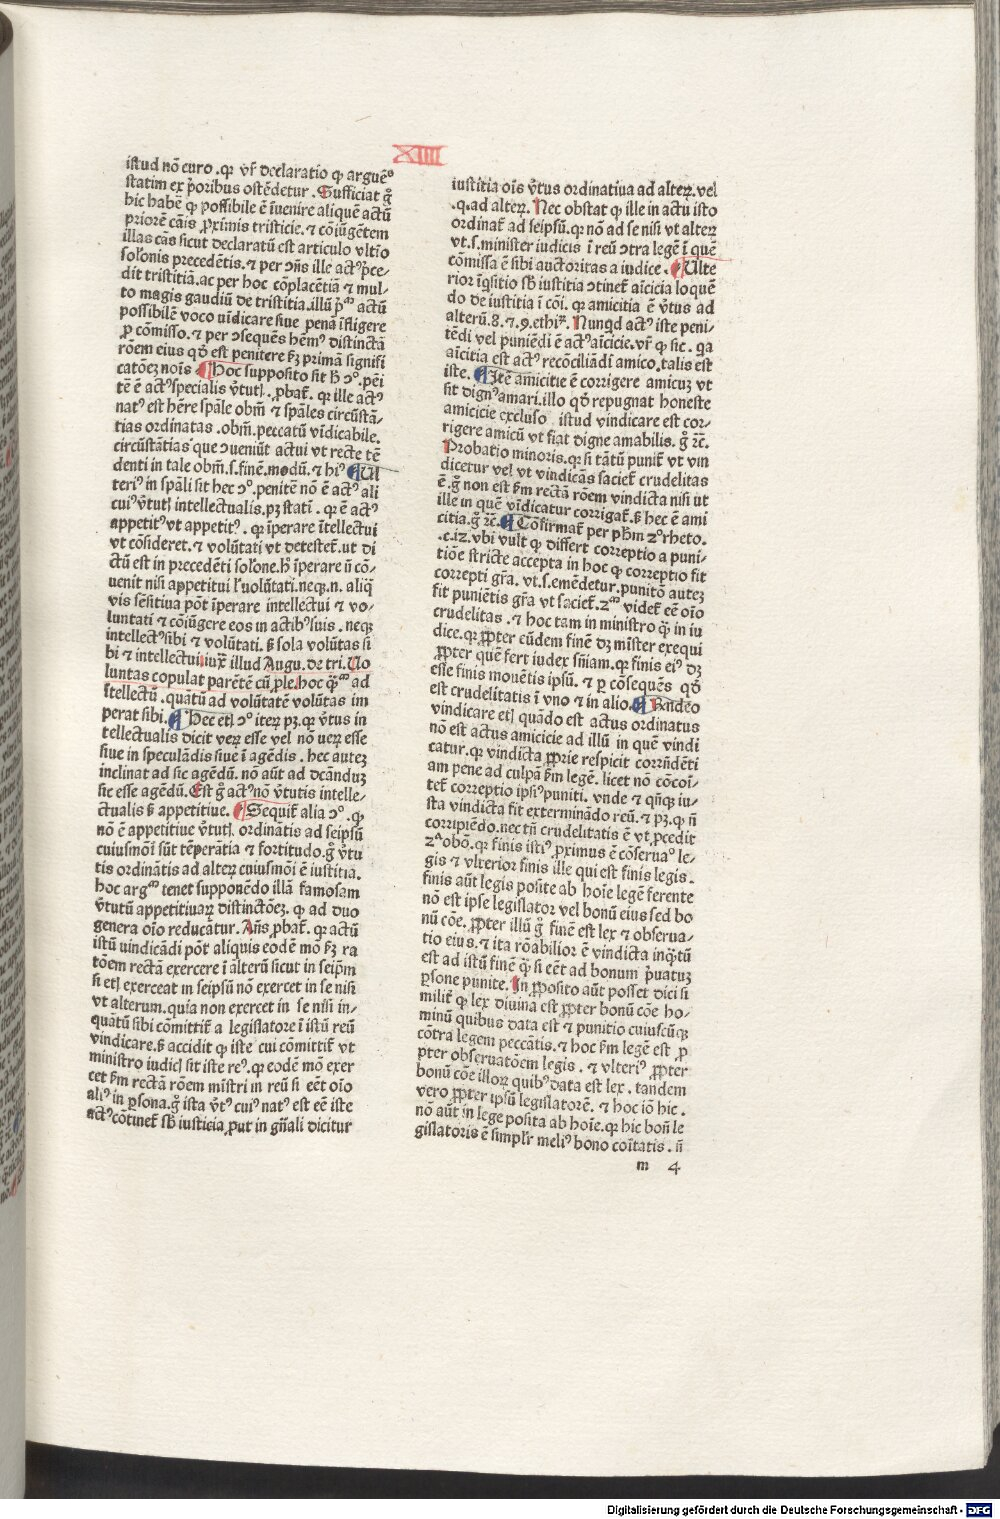 XIIII
istud nō curo . qꝛ vr̄ declaratio ꝙ arguēs
statim ex p̄oribus ostēdetur . Sufficiat gͦ
hic habē ꝙ possibile ē īuenire aliquē actū
priorē cāis ꝓximis tristicie. ⁊ cōiūgētem
illas cās sicut declaratū est articulo vltīo
solōnis precedētis. ⁊ per ↄn̄s ille actꝰ p̄ce⸗
dit tristitiā. ac per hoc cōplacētiā ⁊ mul⸗
to magis gaudiū de tristitia. illū pͥᵐ actū
possibilē voco vīdicare siue penā īfligere
ꝓ cōmisso. ⁊ per ↄsequēs hēmꝰ distinctā
rōem eius qd̄ est penitere ẜꝫ primā signifi
catōeꝫ noīs ¶ Hoc supposito sit h̄ ↄͦ. pēi
tē ē actꝰ specialis v̄tutꝭ. ꝓbat̄. qꝛ ille actꝰ
natꝰ est hēre spāle obm̄ ⁊ spāles circūstā⸗
tias ordinatas . obm̄. peccatū vīdicabile.
circūstātias que ↄueniūt actui vt recte tē
denti in tale obm̄. s. finē. modū. ⁊ hiꝰ ¶ Ul
teriꝰ in spāli sit hec ↄͦ. penitē nō ē actꝰ ali
cuiꝰ v̄tutꝭ intellectualis. pꝫ stati . qꝛ ē actꝰ
appetitꝰ vt appetitꝰ . qꝛ īperare ītellectui
vt cōsideret. ⁊ volūtati vt detestet̄. ut di
ctū est in precedēti solōne. hͦ īperare n̄ cō⸗
uenit nisi appetitui lꝰ volūtati. neqꝫ. n. aliq̄
vis sēsitiua pōt īperare intellectui ⁊ vo⸗
luntati ⁊ cōiūgere eos in actibꝰ suis . neqꝫ
intellectꝰ sibi ⁊ volūtati. ẜ sola volūtas si
bi ⁊ intellectui iux̄ illud Augu. de tri. Uo
luntas copulat parētē cū ꝓle. hoc q̄ᵐ ad
ītellectū . quātū ad volūtatē volūtas im
perat sibi. ¶ Hec etꝭ ↄͦ iteꝝ pꝫ. qꝛ v̄tus in
tellectualis dicit veꝝ esse vel nō ueꝝ esse
siue in speculādis siue ī agēdis . hec auteꝫ
inclinat ad sic agēdū. nō aūt ad dcāndūꝫ
sic esse agēdū. Est gͦ actꝰ nō v̄tutis intelle⸗
ctualis ẜ appetitiue. ¶ Sequit̄ alia ↄͦ . ꝙ
nō ē appetitiue v̄tutꝭ. ordinātis ad seipsū
cuiusmōi sūt tēperātia ⁊ fortitudo. gͦ v̄tu
tis ordinātis ad alteꝝ cuiusmōi ē iustitia.
hoc argᵐ tenet supponēdo illā famosam
v̄tutū appetitiuaꝝ distinctōeꝫ. ꝙ ad duo
genera oīo reducātur. An̄s ꝓbat̄. qꝛ actū
istū uindicādi pōt aliquis eodē mō ẜꝫ ra
tōem rectā exercere ī alterū sicut in seip̄m
si etꝭ exerceat in seipsū nō exercet in se nisi
vt alterum. quia non exercet in se nisi in⸗
quātū sibi cōmittit̄ a legislatore ī istū reū
vindicare. ẜ accidit ꝙ iste cui cōmittit̄ vt
ministro iudicꝭ sit iste reꝰ. ꝙ eodē mō exer
cet ẜm rectā rōem mīstri in reū si eēt oīo
aliꝰ in ꝑsona. gͦ ista v̄tꝰ cuiꝰ natꝰ est eē iste
actꝰ cōtinet̄ sb̄ iusticia ꝓut in gn̄ali dicitur
iustitia oīs v̄tus ordinatiua ad alteꝝ. vel
.q. ad alteꝝ. Nec obstat ꝙ ille in actu isto
ordinat̄ ad seipsū. qꝛ nō ad se nisi vt alteꝝ
vt. s. minister iudicis ī reū ↄtra legē ī quē
cōmissa ē sibi auctoritas a iudice . ¶ Ulte
rior īq̄sitio sb̄ iustitia ↄtinet̄ aīcicia loquē
do de iustitia ī cōi. qꝛ amicitia ē v̄tus ad
alterū. 8. ⁊. 9. ethiꝝ. Nunqd̄ actꝰ iste peni⸗
tēdi vel puniēdi ē actꝰ aīcicie. vr̄ ꝙ sic . qa
aīcitia est actꝰ recōciliādi amico. talis est
iste. ¶ Itē amicitie ē corrigere amicuꝫ vt
sit dignꝰ amari. illo qd̄ repugnat honeste
amicicie excluso istud vindicare est cor⸗
rigere amicū vt fiat digne amabilis. gͦ ꝛc̄.
Probatio minoris. qꝛ si tātū punit̄ vt vin
dicetur vel vt vindicās saciet̄ crudelitas
ē. gͦ non est ẜm rectā rōem vindicta nisi ut
ille in quē vīdicatur corrigat̄. ẜ hec ē ami
citia. gͦ ꝛc̄. ¶ Cōfirmat̄ per ph̄m 2ͦ rheto.
.c. 12. vbi vult ꝙ differt correptio a puni⸗
tiōe stricte accepta in hoc ꝙ correptio fit
correpti gr̄a. vt. s. emēdetur. punitō auteꝫ
fit puniētis gr̄a vt saciet̄. 2ᵐ videt̄ eē oīo
crudelitas . ⁊ hoc tam in ministro q̄ꝫ in iu
dice. qꝛ ꝓpter eūdem finē dꝫ mīster exequi
ꝓpter quē fert iudex sn̄iam. qꝛ finis eiꝰ dꝫ
esse finis mouētis ipsū. ⁊ ꝑ cōsequēs qd̄
est crudelitatis ī vno ⁊ in alio. ¶ Rn̄deo
vindicare etꝭ quādo est actus ordinatus
nō est actus amicicie ad illū in quē vindi
catur. qꝛ vindicta ꝓprie respicit corrn̄dēti
am pene ad culpā ẜm legē. licet nō cōcoi⸗
tet̄ correptio ipsiꝰ puniti. vnde ⁊ qn̄qꝫ iu⸗
sta vindicta fit exterminādo reū. ⁊ pꝫ. ꝙ n̄
corripiēdo. nec tn̄ crudelitatis ē vt ꝓcedit
2ᵃ obō. qꝛ finis istiꝰ ꝓximus ē cōseruaͦ le⸗
gis ⁊ vlterior finis ille qui est finis legis.
finis aūt legis posite ab hoīe legē ferente
nō est ipse legislator vel bonū eius sed bo
nū cōe. ꝓpter illū gͦ finē est lex ⁊ obserua⸗
tio eius. ⁊ ita rōabilior ē vindicta inq̄tū
est ad istū finē q̄ꝫ si eēt ad bonum p̄uatuꝫ
ꝑsone punite. In ꝓposito aūt posset dici si
milit̄ ꝙ lex diuina est ꝓpter bonū cōe ho⸗
minū quibus data est ⁊ punitio cuiuscūqꝫ
cōtra legem peccātis. ⁊ hoc ẜm legē est ꝓ
pter obseruatōem legis . ⁊ vlteriꝰ ꝓpter
bonū cōe illoꝝ quibꝰ data est lex . tandem
vero ꝓpter ipsū legislatorē. ⁊ hoc iō hic .
nō aūt in lege posita ab hoīe. qꝛ hic bon̄ le
gislatoris ē simplr̄ meliꝰ bono coītatis . n̄
m 4
Digitalisierung gefördert durch die Deutsche Forschungsgemeinschaft - DFG